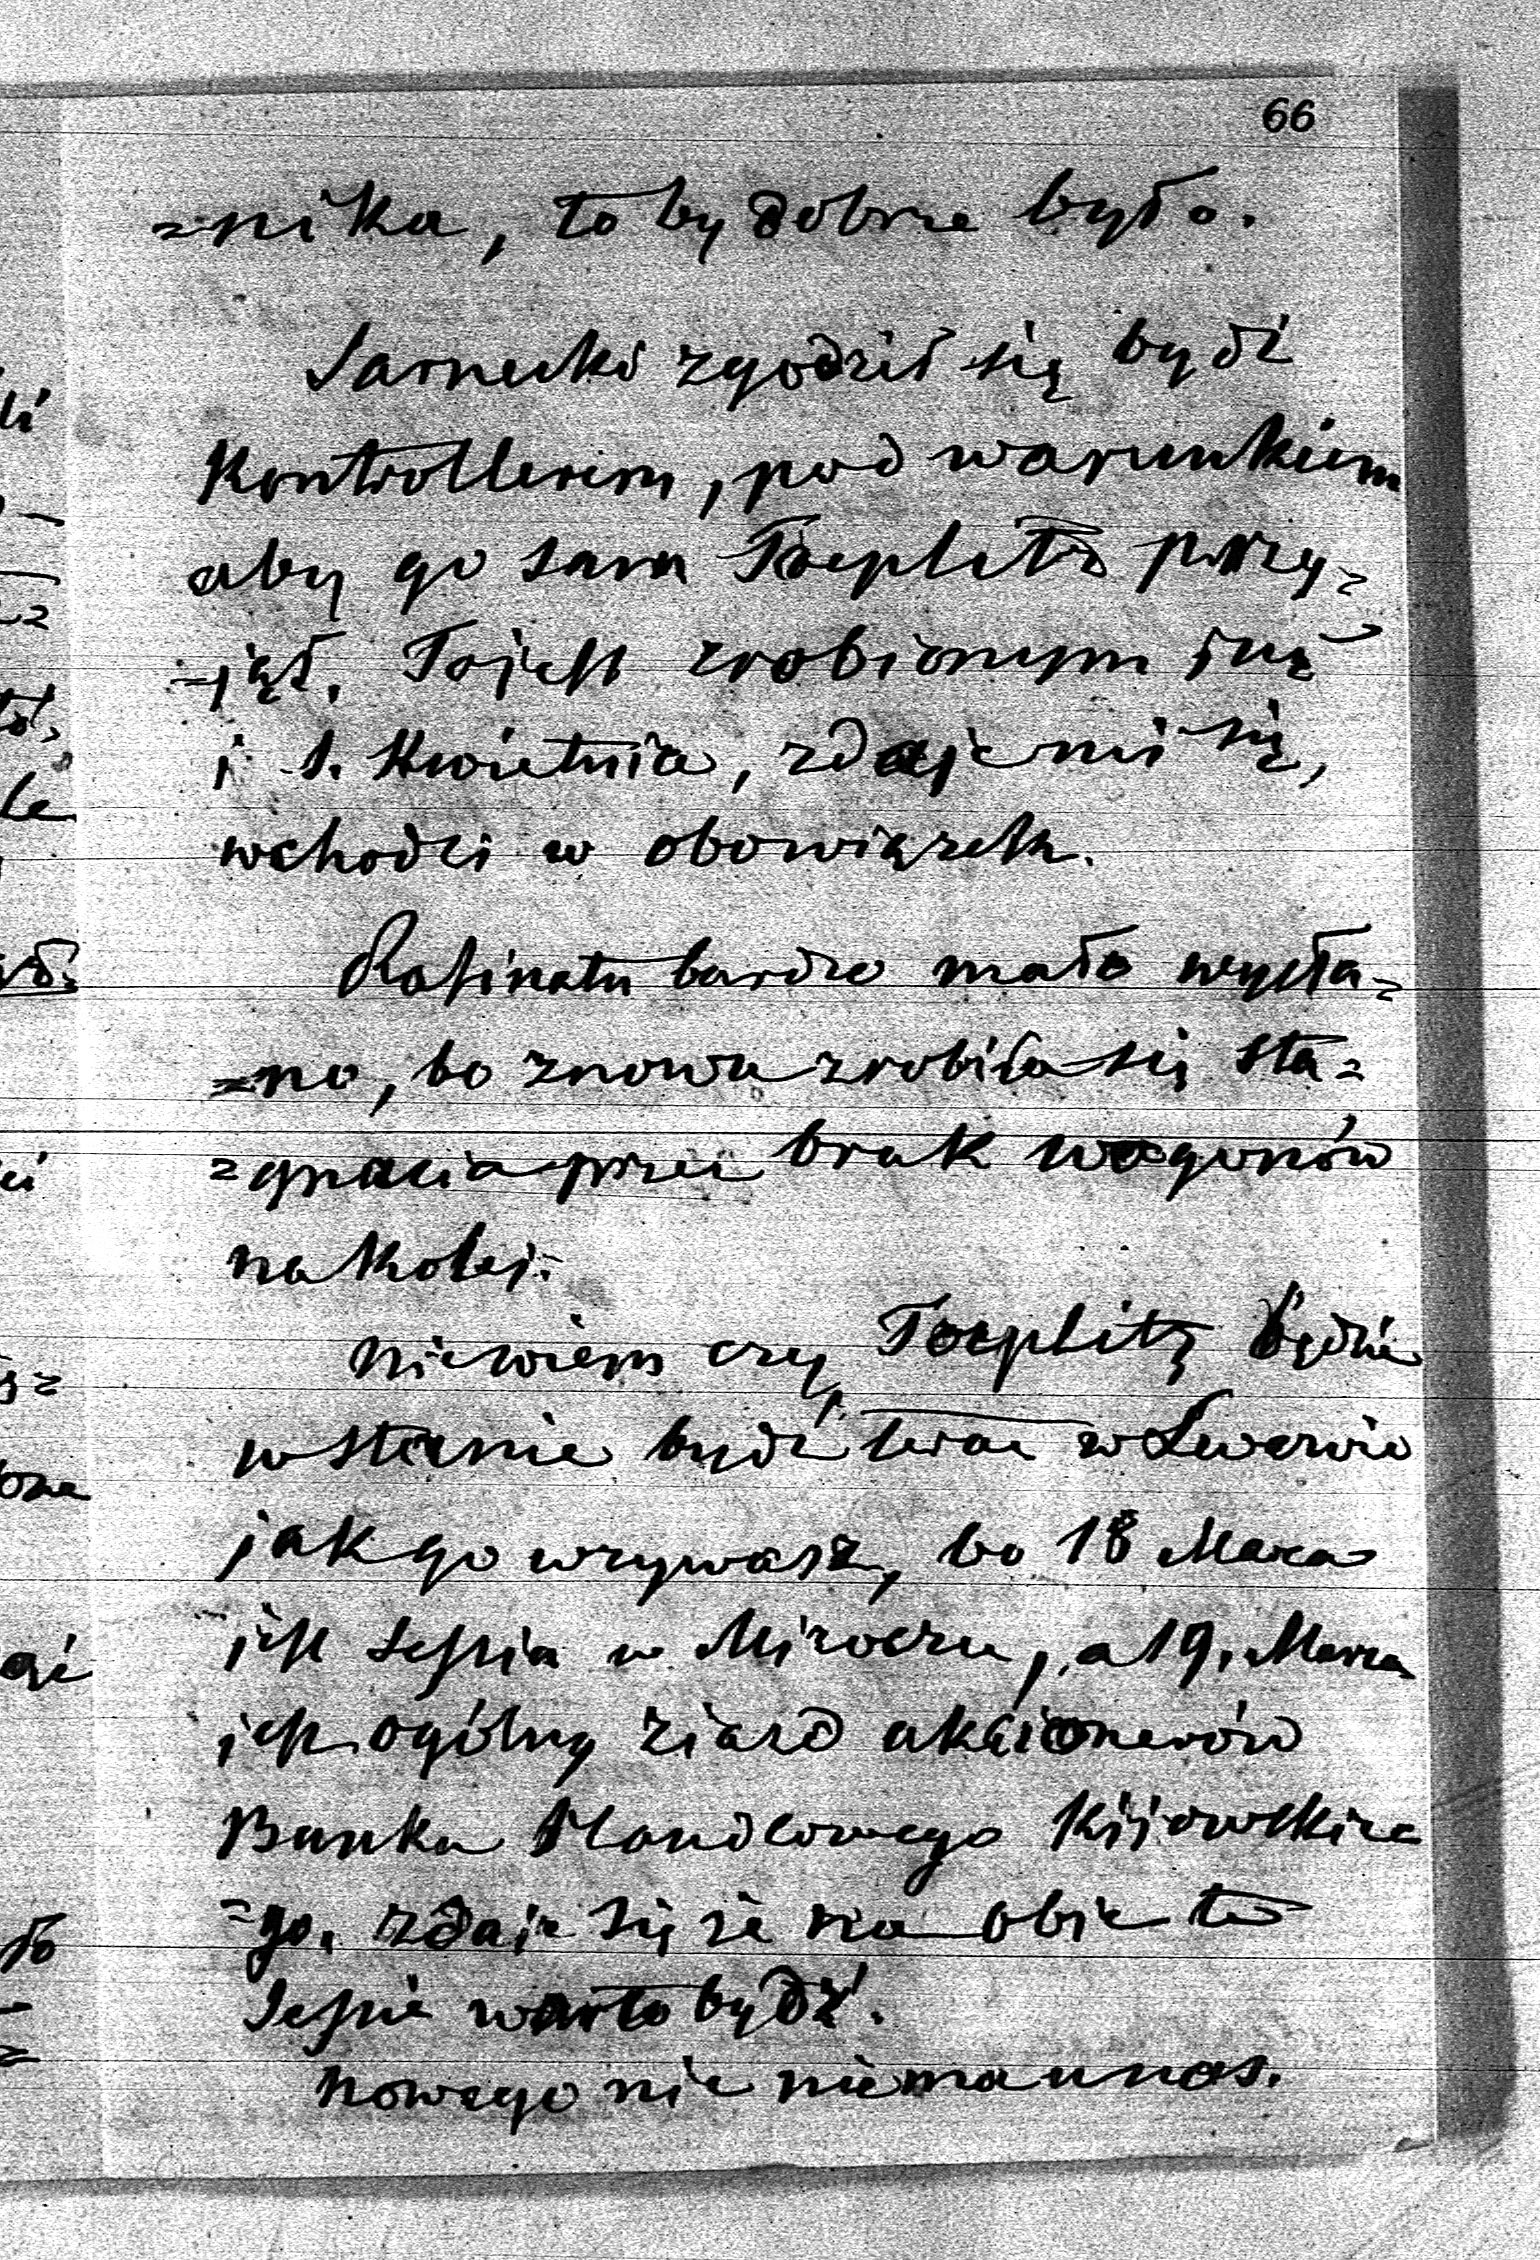 66
=nika, to by dobrze było.
Sarnecki zgodził się bydź
Kontrollerem, pod warunkiem
aby go sam Toeplitz przy=
=jął. To jest zrobionym już
i 1. Kwietnia, zdaje mi się,
wchodzi w obowiązek.
Rafinatu bardzo mało wysła=
=no, bo znowu zrobiła się sta=
=gnacia przez brak wagonów
na kolei.
Niewiem czy Toeplitz będzie
w stanie bydź teraz w
jak go wzywasz, bo 18 Marca
jest Sessia w Mizoczu, a 19. Marca
jest ogólny ziazd akcionerów
Banku Handlowego Kijowskie
=go. zdaje się że na obie te
Sessie warto bydź.
Nowego nic niema u nas.